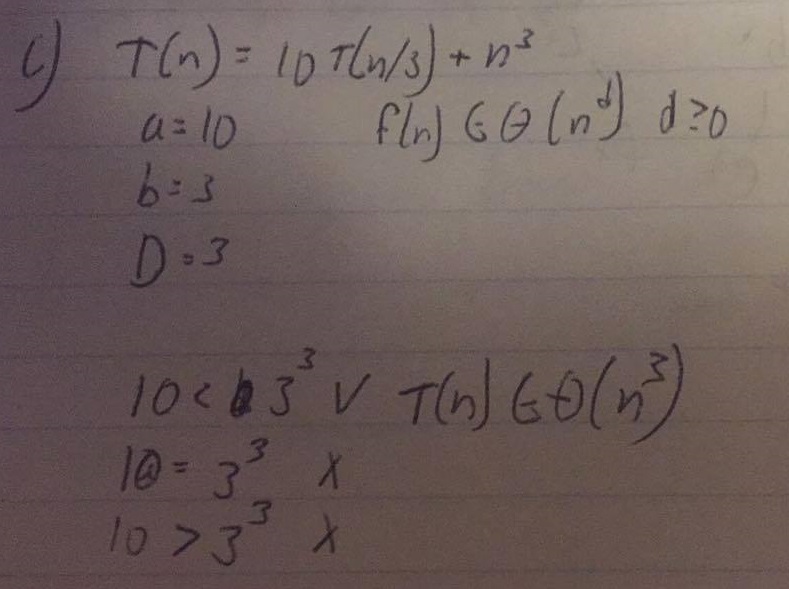 c) T(n) = 10 T(n/3) + n³
a = 10 f(n) ∈ Θ(n^d) d ≥ 0
b = 3
D = 3
10 < 3³ ✓ T(n) ∈ Θ(n³)
10 = 3³ X
10 > 3³ X